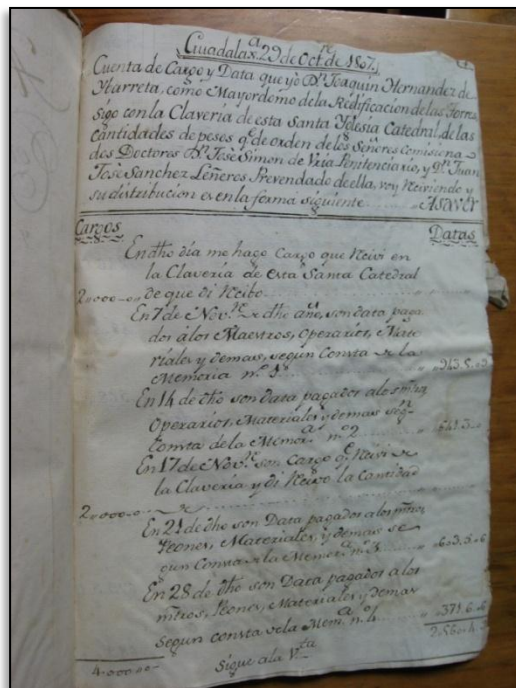 Guadalax.ª 29 de Oct.re de 1807.
Cuenta de Cargo y Data que yo D.n Joaquin Hernandez de
Ybarreta, como Mayordomo de la Redificacion de las Torres,
sigo con la Claveria de esta Santa Yglesia Catedral, de las
Cantidades de pesos q.e de orden de los Señores Comisiona-
dos Doctores D.n Jose Simon de Vria Penitenciario, y D.n Juan
Jose Sanchez Leñeros Prevendado de ella, voy Reciviendo y
su distribucion es en la forma siguiente Asaver
Cargos Datas
En dho dia me hago Cargo que Recivi en
la Claveria de esta Santa Catedral
2..000..00 de que di Recibo
En 7 de Nov.re de dho año, son data paga
dos á los Maestros, Operarios, Mate
riales y demas, segun Consta de la
Memoria n.º 1º
En 14 de dho son data pagados a los mtros
Operarios, Materiales y demas seg.n
Consta de la Memor.ª nº 2
En 17 de Nov.re son Cargo q.e Recivi de
la Claveria y di Recivo la Cantidad
2..000..0 de
En 21 de dho son Data pagados a los mtros
Peones, Materiales, y demas se
gun Consta de la Memor.ª nº 3
En 28 de dho son Data pagados a los
mtros, Peones, Materiales y demas
segun consta de la Mem.ª nº 4
4..000..00
Sigue a la V.ta